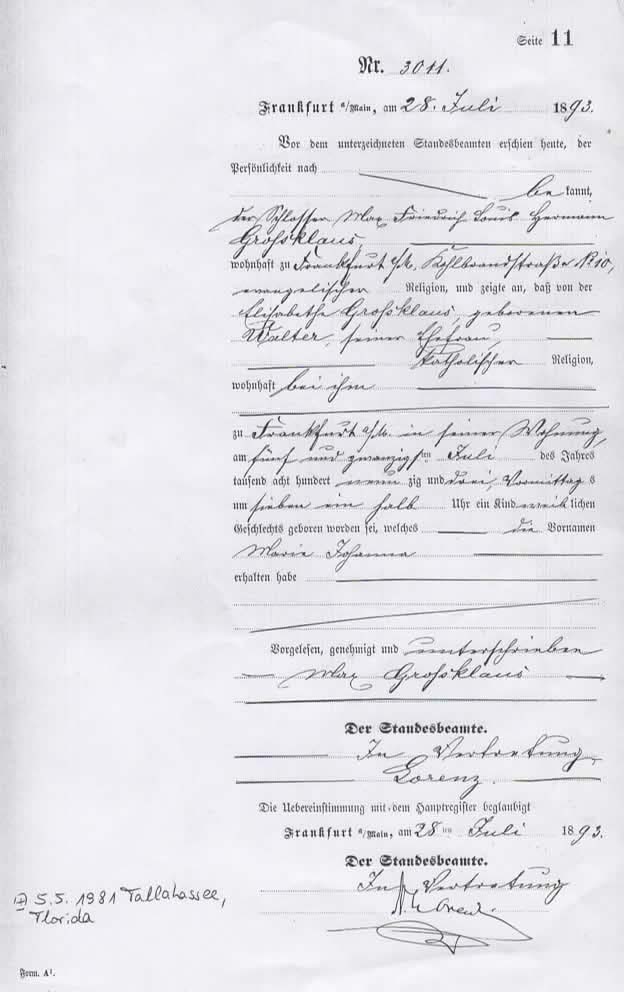 Seite 11
Nr. 3011.
Frankfurt a/Main, am 28. Juli 1893.
Vor dem unterzeichneten Standesbeamten erschien heute, der
Persönlichkeit nach
be kannt,
der Schlosser Max Friedrich Louis Hermann
Großklaus,
wohnhaft zu Frankfurt a/M. Kohlbrandstraße No 10,
evangelischer Religion, und zeigte an, daß von der
Elisabethe Großklaus, geborenen
Walter, seiner Ehefrau,
katholischer Religion,
wohnhaft bei ihm
zu Frankfurt a/M. in seiner Wohnung,
am fünf und zwanzigsten Juli des Jahres
tausend acht hundert neun zig und drei, Vormittag s
um sieben ein halb Uhr ein Kind weib lichen
Geschlechts geboren worden sei, welches die Vornamen
Marie Johanna
erhalten habe
Vorgelesen, genehmigt und unterschrieben
Max Großklaus
Der Standesbeamte.
In Vertretung,
Lorenz.
Die Uebereinstimmung mit dem Hauptregister beglaubigt
Frankfurt a/Main, am 28ten Juli 1893.
Der Standesbeamte.
In Vertretung
5.5. 1981 Tallahassee,
Florida
Form. A1.